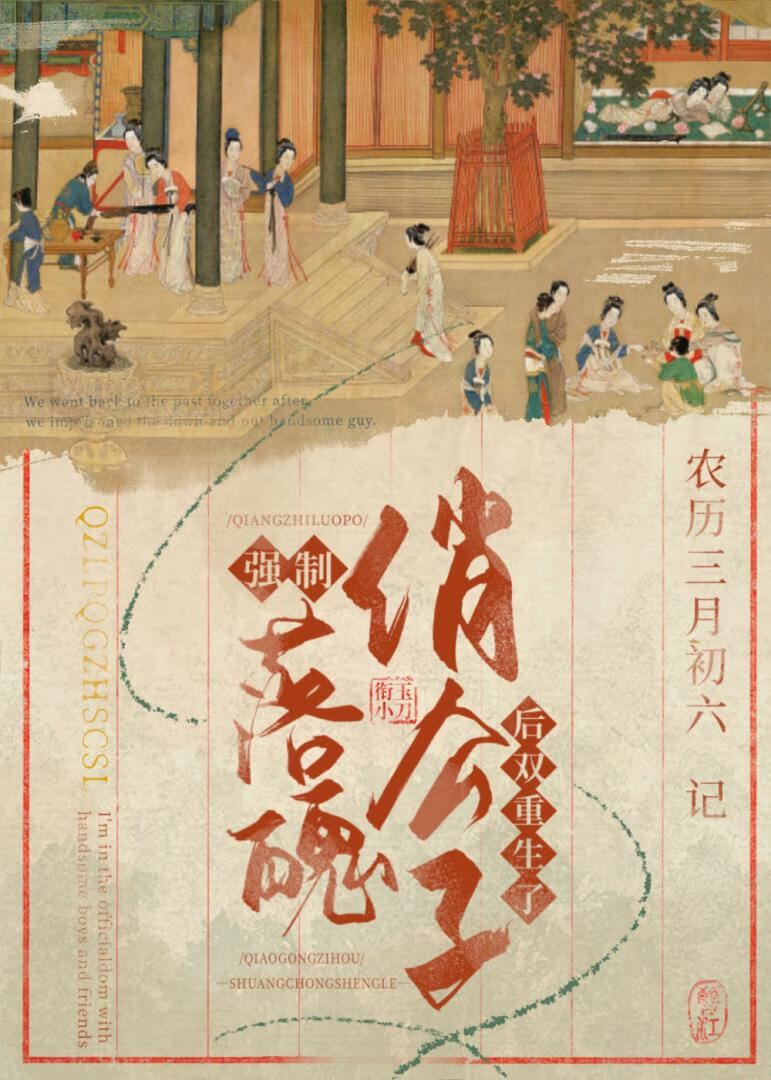 We went back to the past together after,
we imprisoned the down-and-out handsome guy.
农历三月初六 记
/QIANGZHILUOPO/
强制
落魄
俏公子
衔玉
小刀
后双重生了
/QIAOGONGZIHOU/
—SHUANGCHONGSHENGLE—
QZLPQGZHSCSL
I'm in the officialdom with
handsome boys and friends